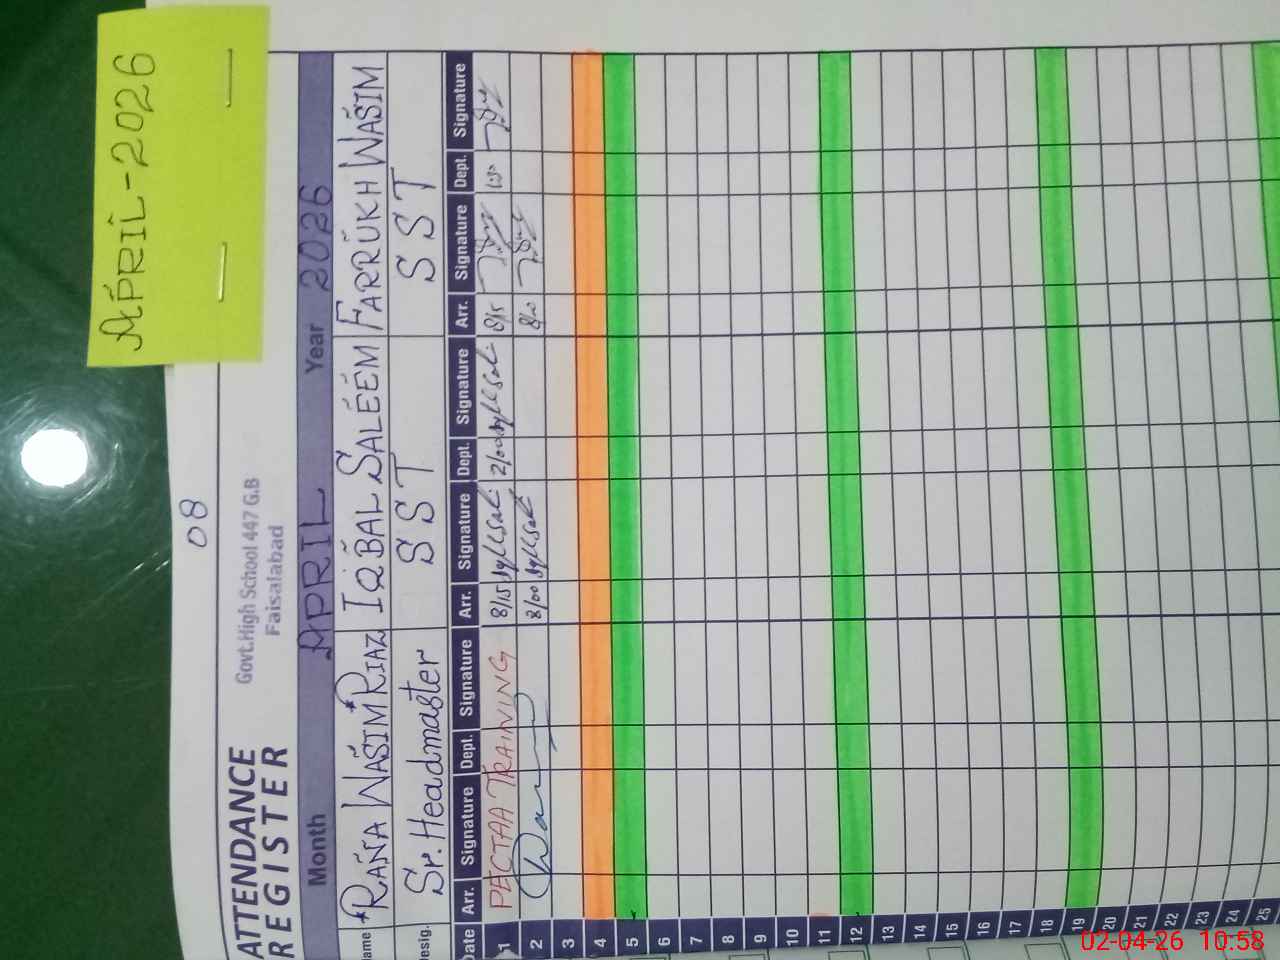 APRIL-2026
08
ATTENDANCE REGISTER
Govt.High School 447 G.B
Faisalabad
Month APRIL Year 2026
Name *RANA WASIM RIAZ* IQBAL SALEEM FARRUKH WASIM
Desig. Sr. Headmaster SST SST
Date Arr. Signature Dept. Signature Arr. Signature Dept. Signature Arr. Signature Dept. Signature
1 PECTAA TRAINING 8/15 2/00 8/15
2 8/00 8/00
3
4
5
6
7
8
9
10
11
12
13
14
15
16
17
18
19
20
21
22
23
24
25
02-04-26 10:58